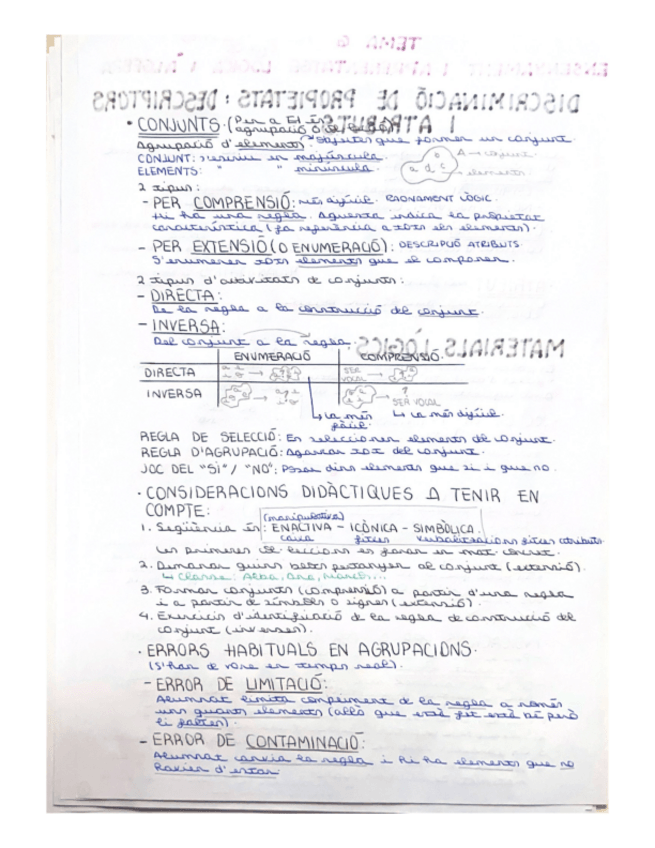 TEMA 6
ENSENYAMENT I APRENENTATGE LÒGICA I
DISCRIMINACIÓ DE PROPIETATS: DESCRIPTORS
I ATRIBUTS
• CONJUNTS: (Per a EI és
agrupació o
Agrupació d'elements → objectes que formen un conjunt.
CONJUNT: s'escriu en majúscula. A → conjunt
ELEMENTS: " " minúscula. a d c → elements
2 tipus:
- PER COMPRENSIÓ: més difícil. RAONAMENT LÒGIC.
Hi ha una regla. Aquesta indica la propietat
característica (fa referència a tots els elements).
- PER EXTENSIÓ (O ENUMERACIÓ): DESCRIPCIÓ ATRIBUTS.
S'enumeren tots elements que el componen.
2 tipus d'activitats de conjunts:
- DIRECTA:
De la regla a la construcció del conjunt.
- INVERSA:
Del conjunt a la regla.
MATERIALS LÒGICS
ENUMERACIÓ COMPRENSIÓ
DIRECTA SER VOCAL →
INVERSA → ? SER VOCAL
↳ La més fàcil. ↳ La més difícil.
REGLA DE SELECCIÓ: En seleccionar elements del conjunt.
REGLA D'AGRUPACIÓ: Agafar tot del conjunt.
JOC DEL "SÍ" / "NO": Posar dins elements que sí i que no.
• CONSIDERACIONS DIDÀCTIQUES A TENIR EN
COMPTE:
(manipulativa)
1. Seqüència en: ENACTIVA - ICÒNICA - SIMBÒLICA.
caixa fitxes verbalitzacions fitxes atributs
Les primeres col·leccions es faran en mat. concret.
2. Demanar quins béns pertanyen al conjunt (extensió).
↳ Classe: Alba, Ana, Marcos...
3. Formar conjunts (comprensió) a partir d'una regla
i a partir de símbols o signes (extensió).
4. Exercicis d'identificació de la regla de construcció del
conjunt (inverses).
• ERRORS HABITUALS EN AGRUPACIONS.
(S'han de vore en temps real).
- ERROR DE LIMITACIÓ:
Alumnat limita compliment de la regla a només
uns quants elements (allò que està fet està bé però
li falten).
- ERROR DE CONTAMINACIÓ:
Alumnat canvia la regla i hi ha elements que no
havien d'estar.